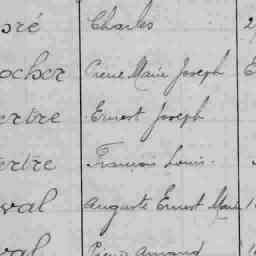 Charles
ocher Pierre Marie Joseph
ertre Ernest Joseph
ertre François Louis
val Auguste Ernest Marie
val Pierre Armand